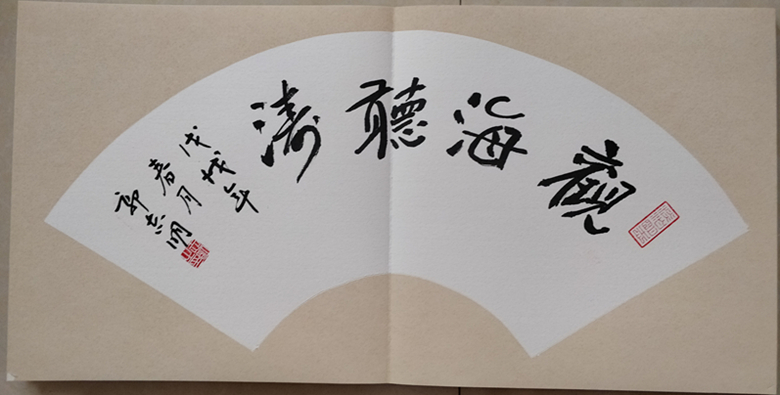 觀海聽濤
戊戌年
春月
郭志明